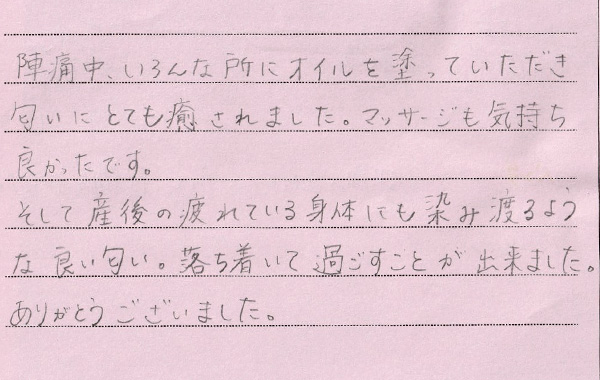 陣痛中、いろんな所にオイルを塗っていただき
匂いにとても癒されました。マッサージも気持ち
良かったです。
そして産後の疲れている身体にも染み渡るよう
な良い匂い。落ち着いて過ごすことが出来ました。
ありがとうございました。